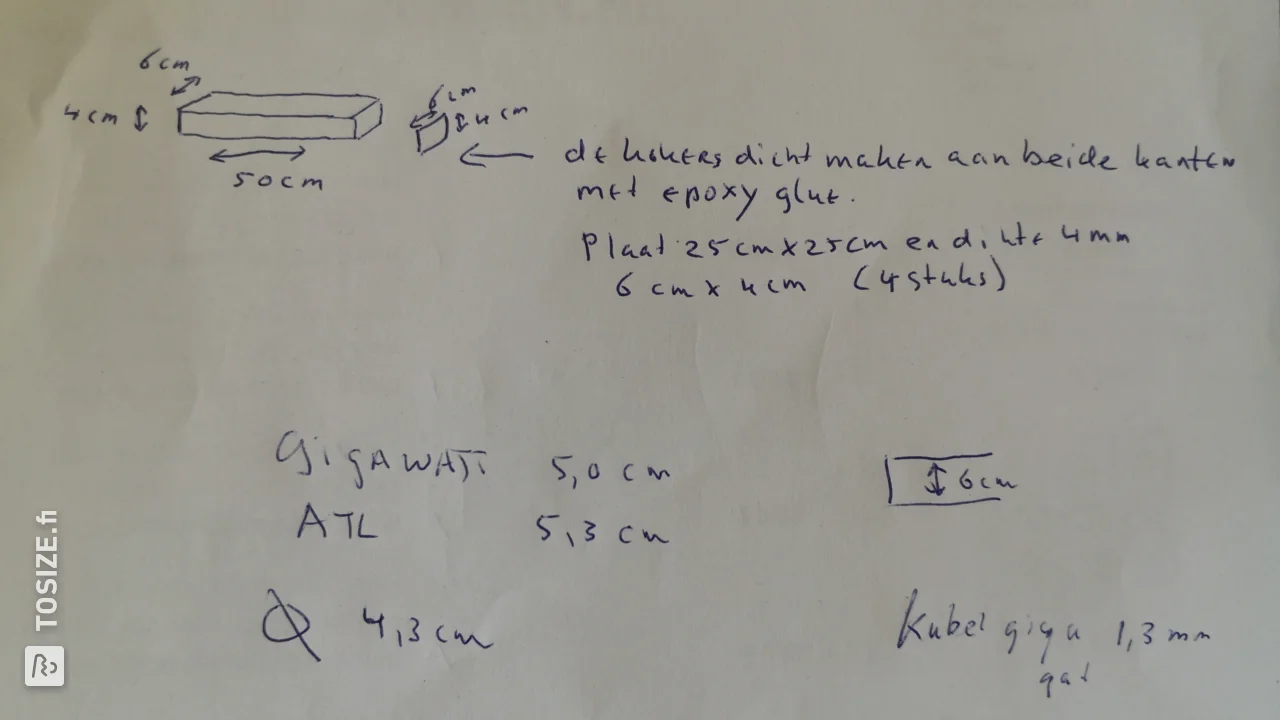 6 cm
4 cm
50 cm
6 cm
4 cm
de kokers dicht maken aan beide kanten
met epoxy glue.
Plaat 25 cm x 25 cm en dikte 4 mm
6 cm x 4 cm (4 stuks)
GigAWATT 5,0 cm
ATL 5,3 cm
6 cm
Ø 4,3 cm
Kabel giga 1,3 mm
gat
TOSIZE.fi